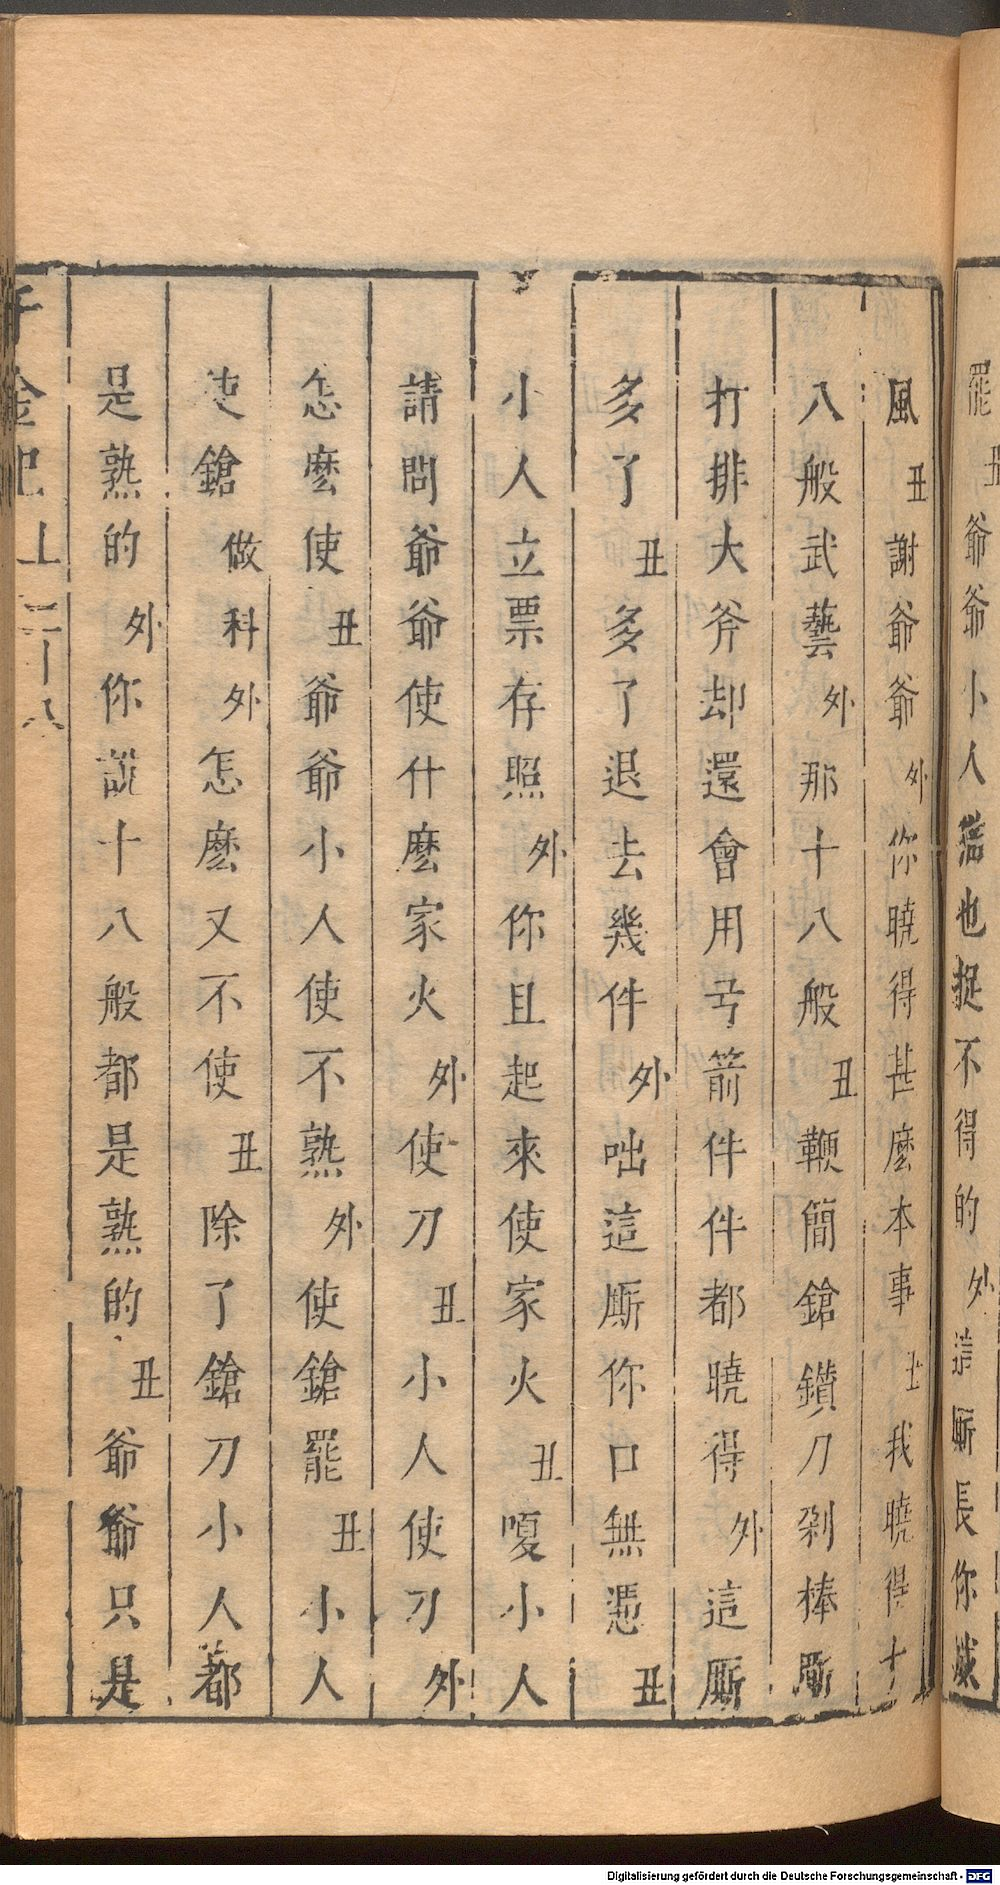 罷丑爺爺小人猫也捉不得的外這厮長你威
風丑謝爺爺外你曉得甚麼本事丑我曉得十
八般武藝外那十八般丑鞭簡鎗鑚刀剁棒厮
打排大斧却還會用弓箭件件都曉得外這厮
多了丑多了退去幾件外咄這厮你口無憑丑
小人立票存照外你且起來使家火丑嗄小人
請問爺爺使什麽家火外使刀丑小人使刀外
怎麽使丑爺爺小人使不熟外使鎗罷丑小人
使鎗做科外怎麽又不使丑除了鎗刀小人都
是熟的外你說十八般都是熟的丑爺爺只是
千金記 上 二十八
Digitalisierung gefördert durch die Deutsche Forschungsgemeinschaft - DFG